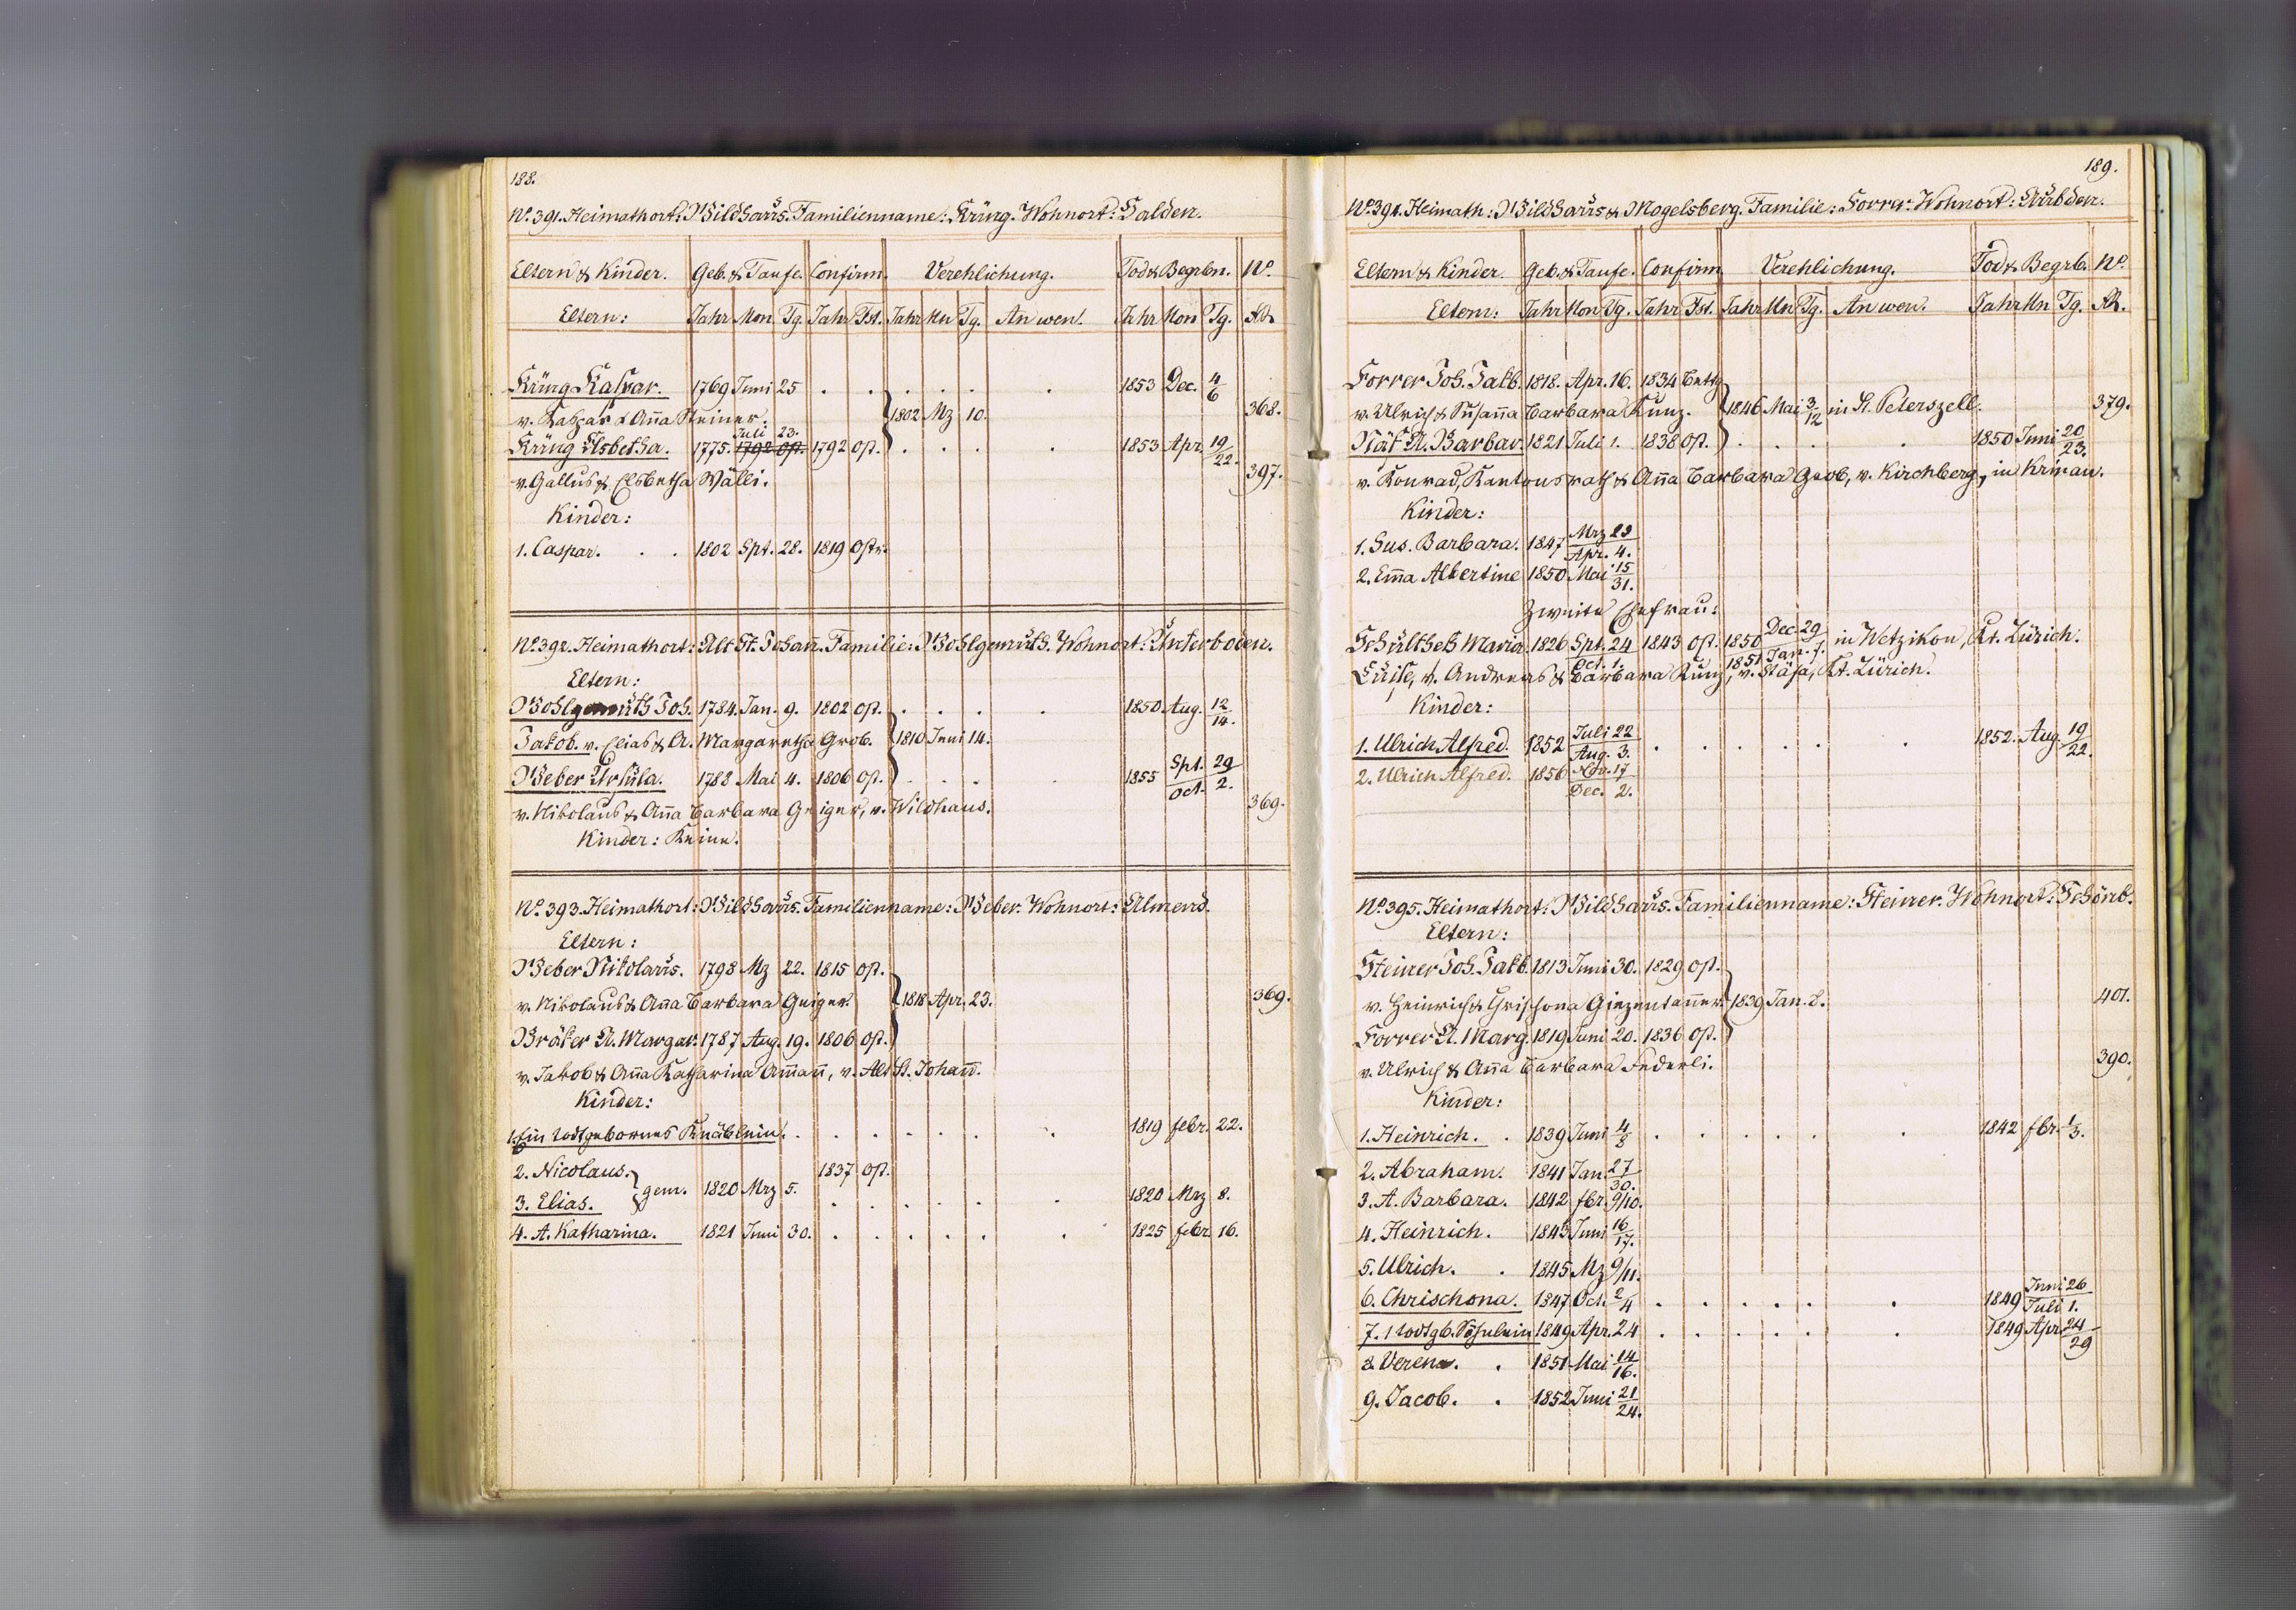 188.
No. 391. Heimathort: Wildhaus. Familienname: Küng. Wohnort: Halden.
Eltern & Kinder. Geb. & Taufe. Confirm. Verehlichung. Tod & Begrbn. No.
Eltern: Jahr Mon. Tg. Jahr Fst. Jahr Mn Tg. An wen. Jahr Mon Tg.
Küng Kaspar. 1769 Juni 25 . . . . . . 1853 Dec. 4/6
v. Kaspar & Anna Steiner. 1802 Mz 10. 368.
Juli 23.
Küng Elsbetha. 1775. 1792 Ost. 1792 Ost. . . . . 1853 Apr. 19/22.
v. Gallus & Elsbetha Wälli. 397.
Kinder:
1. Caspar. . . 1802 Spt. 28. 1819 Ostr.
No. 392. Heimathort: Alt St. Johann. Familie: Wohlgemuth. Wohnort: Unterboden.
Eltern:
Wohlgemuth Joh. 1784. Jan. 9. 1802 Ost. . . . . 1850 Aug. 12/14.
Jakob. v. Elias & A. Margaretha Grob. 1810 Juni 14.
Weber Ursula. 1788 Mai 4. 1806 Ost. . . . . 1855 Spt. 29/Oct. 2.
v. Nikolaus & Anna Barbara Geiger, v. Wildhaus. 369.
Kinder: Keine.
No. 393. Heimathort: Wildhaus. Familienname: Weber. Wohnort: Almend.
Eltern:
Weber Nikolaus. 1798 Mz 22. 1815 Ost.
v. Nikolaus & Anna Barbara Geiger. 1818 Apr. 23. 369.
Bräker A. Margar. 1787 Aug. 19. 1806 Ost.
v. Jakob & Anna Katharina Amann, v. Alt St. Johann.
Kinder:
1. Ein todtgebornes Knäblein. . . . . . . . 1819 febr. 22.
2. Nicolaus. 1837 Ost.
gem. 1820 Mrz 5.
3. Elias. . . . . . . 1820 Mrz 8.
4. A. Katharina. 1821 Juni 30. . . . . . . 1825 febr. 16.
189.
No. 394. Heimath: Wildhaus & Mogelsberg. Familie: Forrer. Wohnort: Aubden.
Eltern & Kinder. Geb. & Taufe. Confirm Verehlichung. Tod & Begrb. No.
Eltern: Jahr Mon Tg. Jahr Fst. Jahr Mn Tg. An wen. Jahr Mn Tg.
Forrer Joh. Jakb. 1818. Apr. 16. 1834 Bettg
v. Ulrich & Susanna Barbara Kunz. 1846 Mai 3/12 in St. Peterszell. 379.
Näf A. Barbar. 1821 Juli 1. 1838 Ost. . . . . 1850 Juni 20/23.
v. Konrad, Kantonsrath & Anna Barbara Grob, v. Kirchberg, in Krinau.
Kinder:
1. Sus. Barbara. 1847 Mrz 23/Apr. 4.
2. Emma Albertine 1850 Mai 15/31.
Zweite Ehefrau:
Schulthess Maria 1826 Spt. 24/Oct. 1. 1843 Ost. 1850 Dec. 29/1851 Jan. 7. in Wetzikon, Kt. Zürich.
Luise, v. Andreas & Barbara Kunz, v. Stäfa, Kt. Zürich.
Kinder:
1. Ulrich Alfred. 1852 Juli 22/Aug. 3. . . . . . . 1852. Aug. 19/22.
2. Ulrich Alfred. 1856 Nov. 17/Dec. 2.
No. 395. Heimathort: Wildhaus. Familienname: Steiner. Wohnort: Schönb.
Eltern:
Steiner Joh. Jakb. 1813 Juni 30. 1829 Ost.
v. Heinrich & Crischona Giezendanner 1839 Jan. 8. 401.
Forrer A. Marg. 1819 Juni 20. 1836 Ost.
v. Ulrich & Anna Barbara Federli. 390.
Kinder:
1. Heinrich. . 1839 Juni 4/8 . . . . . . 1842 fbr. 1/3.
2. Abraham. 1841 Jan. 27/30.
3. A. Barbara. 1842 fbr. 9/10.
4. Heinrich. 1843 Juni 16/17.
5. Ulrich. . 1845 Mz 9/11.
6. Chrischona. 1847 Oct. 2/4 . . . . . . 1849 Juni 26/Juli 1.
7. 1 todtgb. Söhnlein 1849 Apr. 24 . . . . . . 1849 Apr. 24/29
8. Verena. . 1851 Mai 14/16.
9. Jacob. . 1852 Juni 21/24.